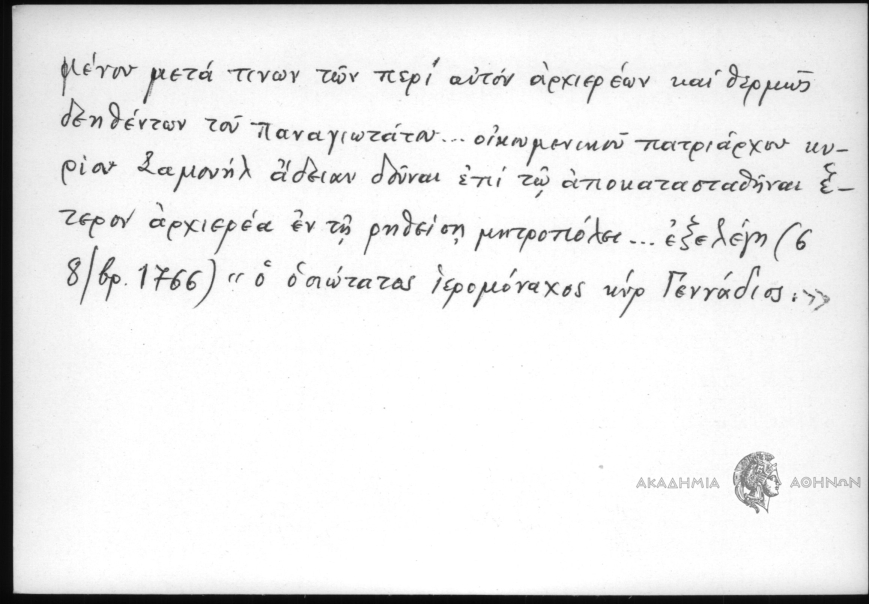 μένου μετά τινων τῶν περί αὐτόν ἀρχιερέων καί θερμῶς
δεηθέντων τοῦ Παναγιωτάτου... οἰκουμενικοῦ πατριάρχου κυ-
ρίου Σαμουήλ ἄδειαν δοῦναι ἐπί τῷ ἀποκατασταθῆναι ἕ-
τερον ἀρχιερέα ἐν τῇ ῥηθείσῃ μητροπόλει... ἐξελέγη (6
8/βρ. 1766) " ὁ ὁσιώτατος ἱερομόναχος κύρ Γεννάδιος.»
ΑΚΑΔΗΜΙΑ ΑΘΗΝΩΝ